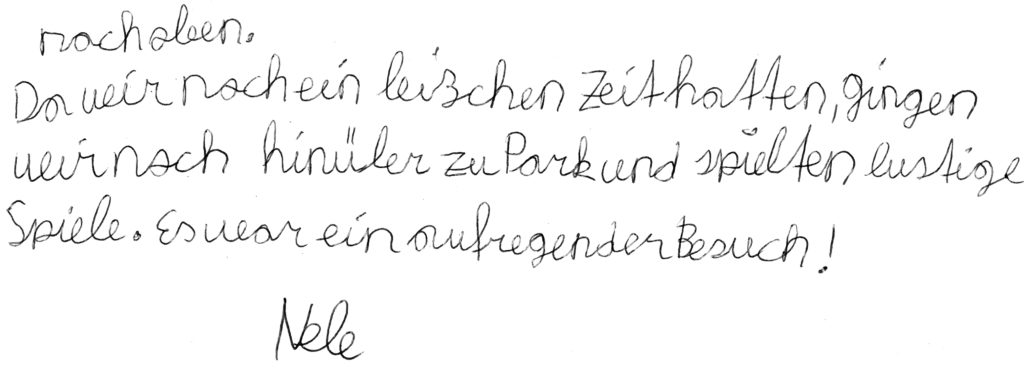 nach oben.
Da wir noch ein bißchen Zeit hatten, gingen
wir noch hinüber zu Park und spielten lustige
Spiele. Es war ein aufregender Besuch!
Nele